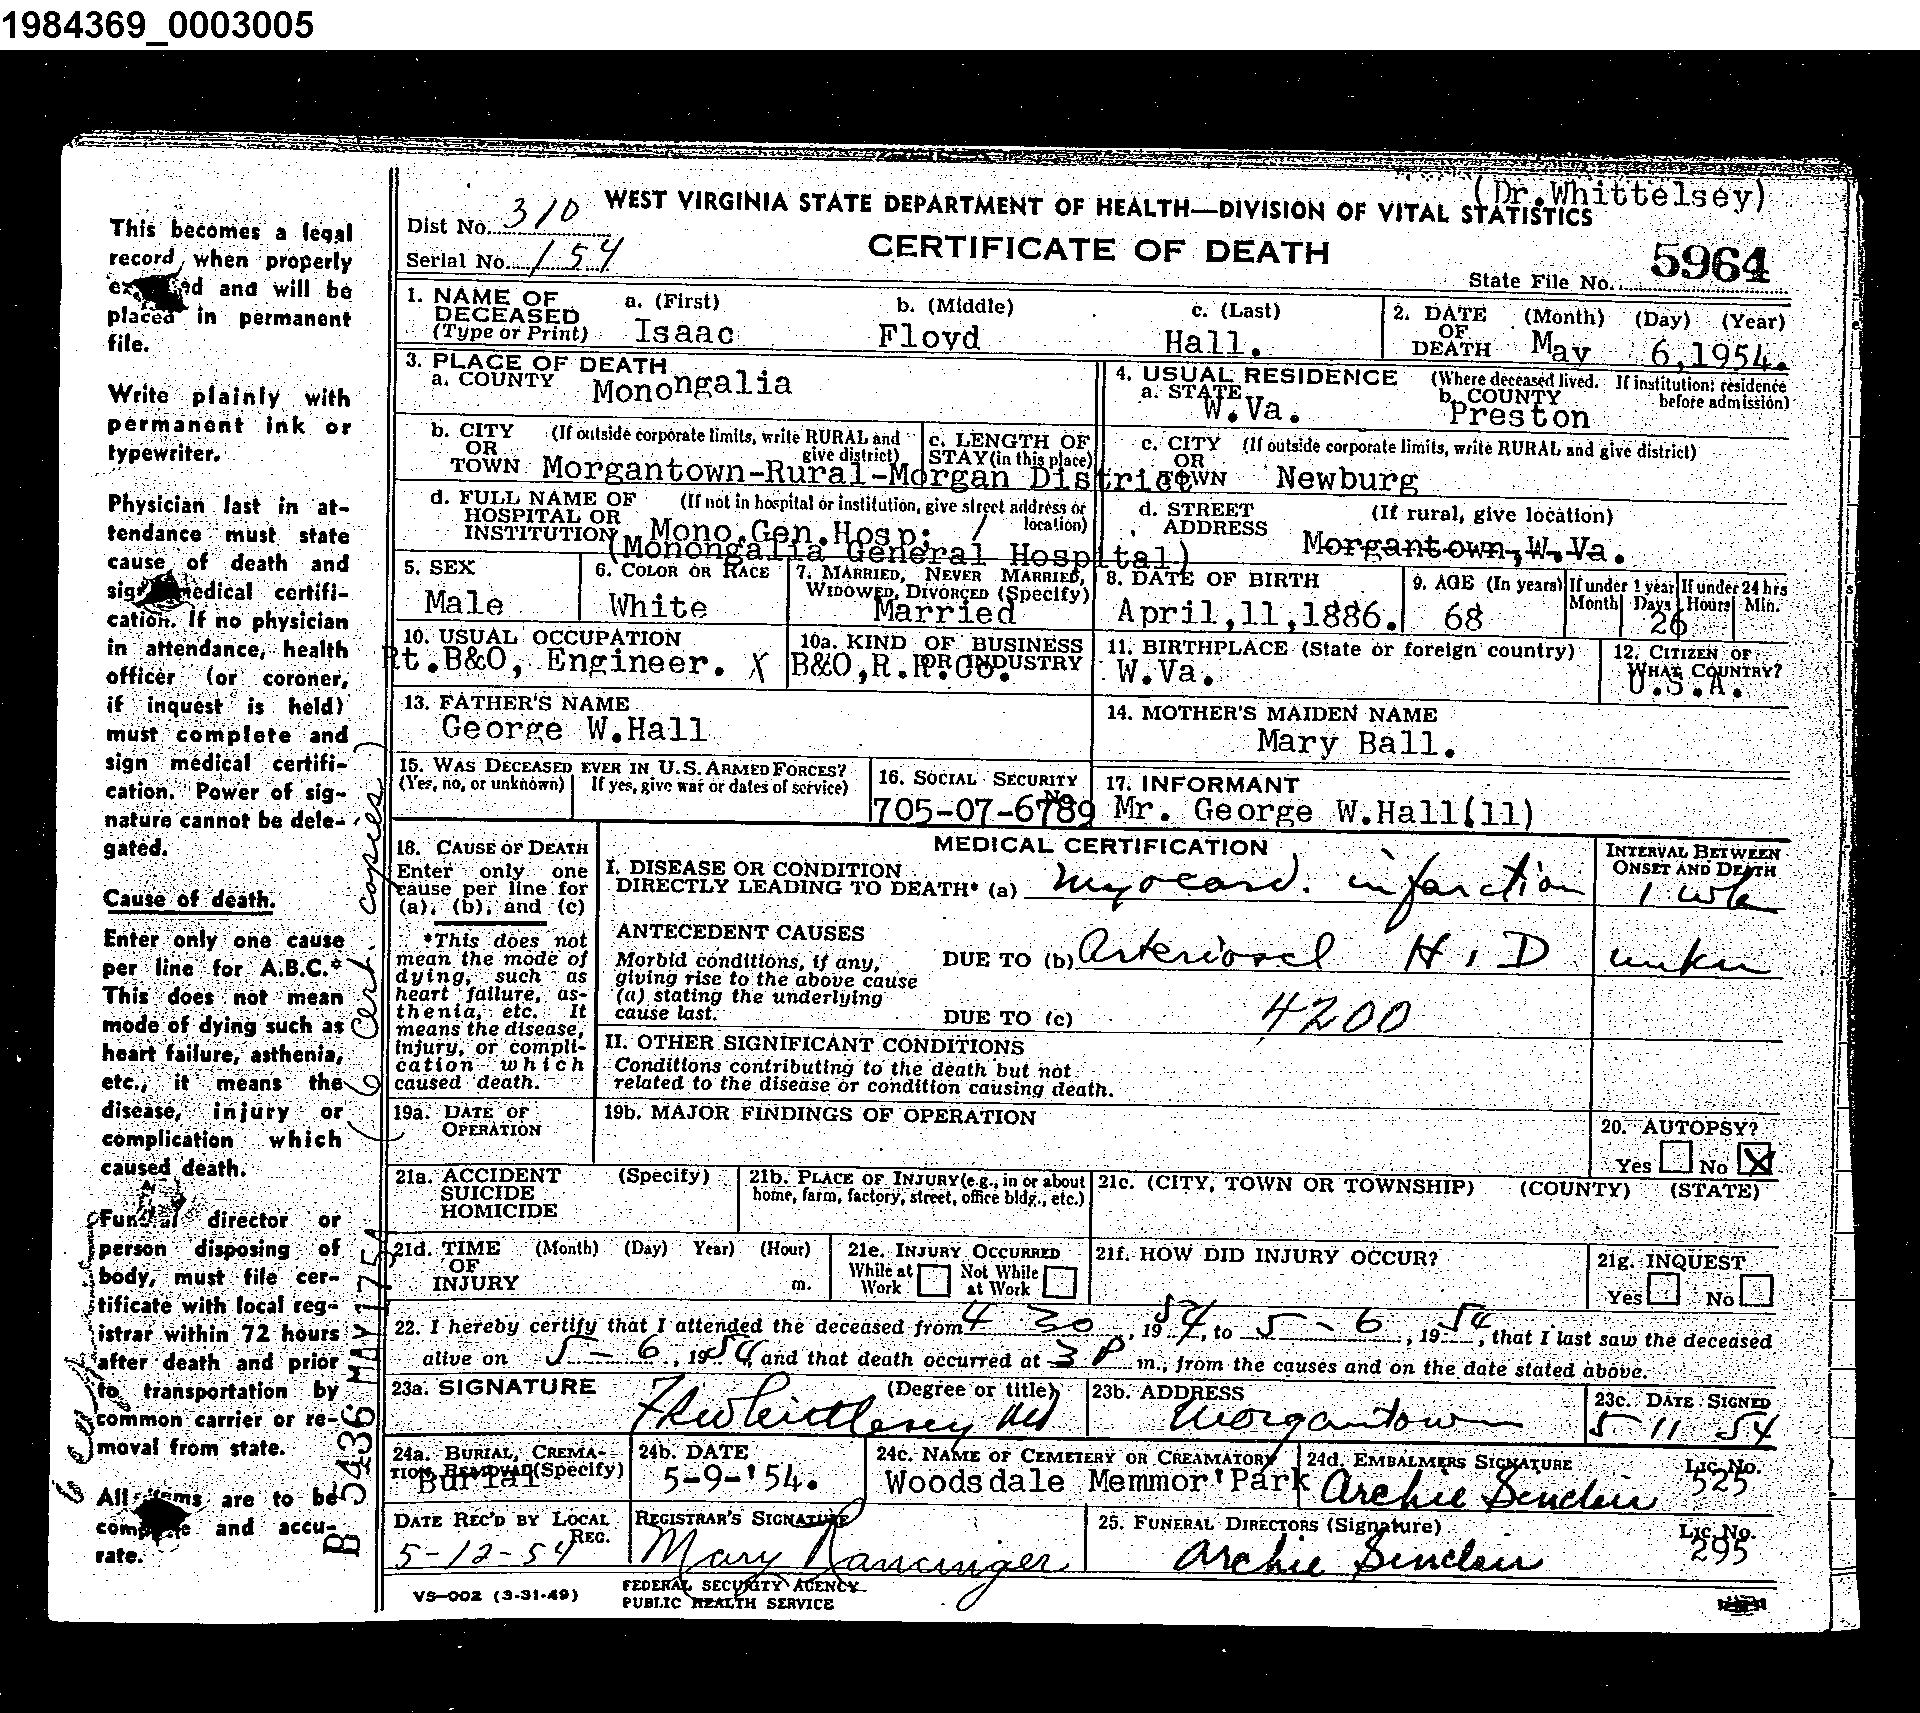 1984369_0003005
(Dr.Whittelsey)
WEST VIRGINIA STATE DEPARTMENT OF HEALTH—DIVISION OF VITAL STATISTICS
Dist No. 310
CERTIFICATE OF DEATH
Serial No. 154
State File No. 5964
This becomes a legal
record when properly
and will be
placed in permanent
file.
Write plainly with
permanent ink or
typewriter.
Physician last in at-
tendance must state
cause of death and
medical certifi-
cation. If no physician
in attendance, health
officer (or coroner,
if inquest is held)
must complete and
sign medical certifi-
cation. Power of sig-
nature cannot be dele-
gated.
Cause of death.
Enter only one cause
per line for A.B.C.*
This does not mean
mode of dying such as
heart failure, asthenia,
etc., it means the
disease, injury or
complication which
caused death.
Funeral director or
person disposing of
body, must file cer-
tificate with local reg-
istrar within 72 hours
after death and prior
to transportation by
common carrier or re-
moval from state.
All items are to be
and accu-
rate.
(6 Cert. copies)
B 5436 MAY 17 54
1. NAME OF DECEASED (Type or Print) a. (First) Isaac b. (Middle) Floyd c. (Last) Hall.
2. DATE OF DEATH (Month) (Day) (Year) May 6,1954.
3. PLACE OF DEATH
a. COUNTY Monongalia
4. USUAL RESIDENCE (Where deceased lived. If institution: residence before admission)
a. STATE W.Va. b. COUNTY Preston
b. CITY OR TOWN (If outside corporate limits, write RURAL and give district) Morgantown-Rural-Morgan District
c. LENGTH OF STAY (in this place)
c. CITY OR TOWN (If outside corporate limits, write RURAL and give district) Newburg
d. FULL NAME OF HOSPITAL OR INSTITUTION (If not in hospital or institution, give street address or location) Mono.Gen.Hosp;
(Monongalia General Hospital)
d. STREET ADDRESS (If rural, give location) Morgantown,W.Va.
5. SEX Male
6. COLOR OR RACE White
7. MARRIED, NEVER MARRIED, WIDOWED, DIVORCED (Specify) Married
8. DATE OF BIRTH April,11,1886.
9. AGE (In years) 68 If under 1 year Month Days 26 If under 24 hrs Hours Min.
10. USUAL OCCUPATION Rt.B&O, Engineer. X
10a. KIND OF BUSINESS OR INDUSTRY B&O,R.R.Co.
11. BIRTHPLACE (State or foreign country) W.Va.
12. CITIZEN OF WHAT COUNTRY? U.S.A.
13. FATHER'S NAME George W.Hall
14. MOTHER'S MAIDEN NAME Mary Ball.
15. WAS DECEASED EVER IN U.S. ARMED FORCES? (Yes, no, or unknown) If yes, give war or dates of service)
16. SOCIAL SECURITY No. 705-07-6789
17. INFORMANT Mr. George W.Hall(11)
MEDICAL CERTIFICATION
18. CAUSE OF DEATH
Enter only one
cause per line for
(a), (b), and (c)
*This does not
mean the mode of
dying, such as
heart failure, as-
thenia, etc. It
means the disease,
injury, or compli-
cation which
caused death.
I. DISEASE OR CONDITION
DIRECTLY LEADING TO DEATH* (a) Myocard. infarction
INTERVAL BETWEEN ONSET AND DEATH 1 wk
ANTECEDENT CAUSES
Morbid conditions, if any,
giving rise to the above cause
(a) stating the underlying
cause last.
DUE TO (b) Arteriosel H.D unkn
DUE TO (c) 4200
II. OTHER SIGNIFICANT CONDITIONS
Conditions contributing to the death but not
related to the disease or condition causing death.
19a. DATE OF OPERATION
19b. MAJOR FINDINGS OF OPERATION
20. AUTOPSY?
Yes No X
21a. ACCIDENT SUICIDE HOMICIDE (Specify)
21b. PLACE OF INJURY (e.g., in or about home, farm, factory, street, office bldg., etc.)
21c. (CITY, TOWN OR TOWNSHIP) (COUNTY) (STATE)
21d. TIME OF INJURY (Month) (Day) Year) (Hour) m.
21e. INJURY OCCURRED
While at Work Not While at Work
21f. HOW DID INJURY OCCUR?
21g. INQUEST
Yes No
22. I hereby certify that I attended the deceased from 4 30, 1954, to 5-6, 1954, that I last saw the deceased
alive on 5-6, 1954, and that death occurred at 3 P m., from the causes and on the date stated above.
23a. SIGNATURE (Degree or title) FRWhittlesey MD
23b. ADDRESS Morgantown
23c. DATE SIGNED 5 11 54
24a. BURIAL, CREMATION, REMOVAL (Specify) Burial
24b. DATE 5-9-'54.
24c. NAME OF CEMETERY OR CREAMATORY Woodsdale Memmor'Park
24d. EMBALMERS SIGNATURE Archie Sinclair Lic. No. 525
DATE REC'D BY LOCAL REG. 5-12-54
REGISTRAR'S SIGNATURE Mary
25. FUNERAL DIRECTORS (Signature) Archie Sinclair Lic. No. 295
VS-002 (3-31-49)
FEDERAL SECURITY AGENCY
PUBLIC HEALTH SERVICE